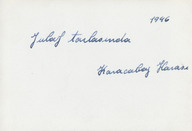 1946
Yulaf tarlasında
Karacabey Harası